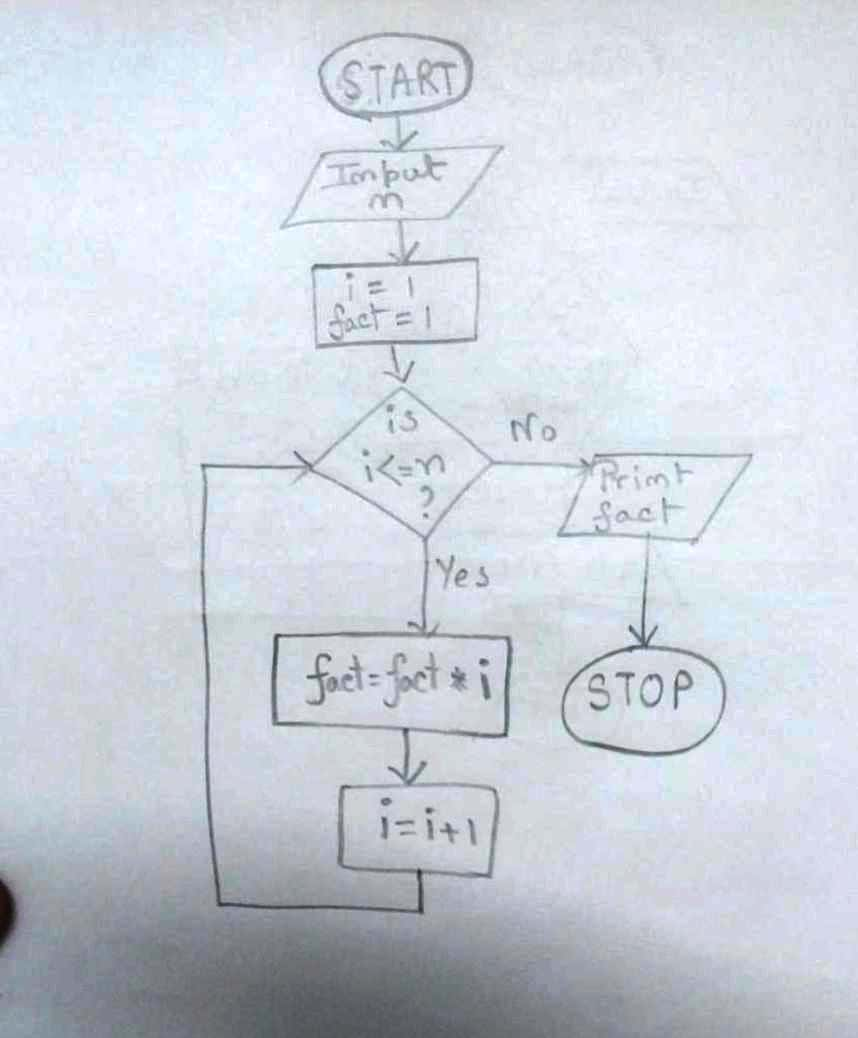 START
Input
n
i = 1
fact = 1
is
i<=n
?
No
Print
fact
Yes
fact=fact * i
STOP
i=i+1